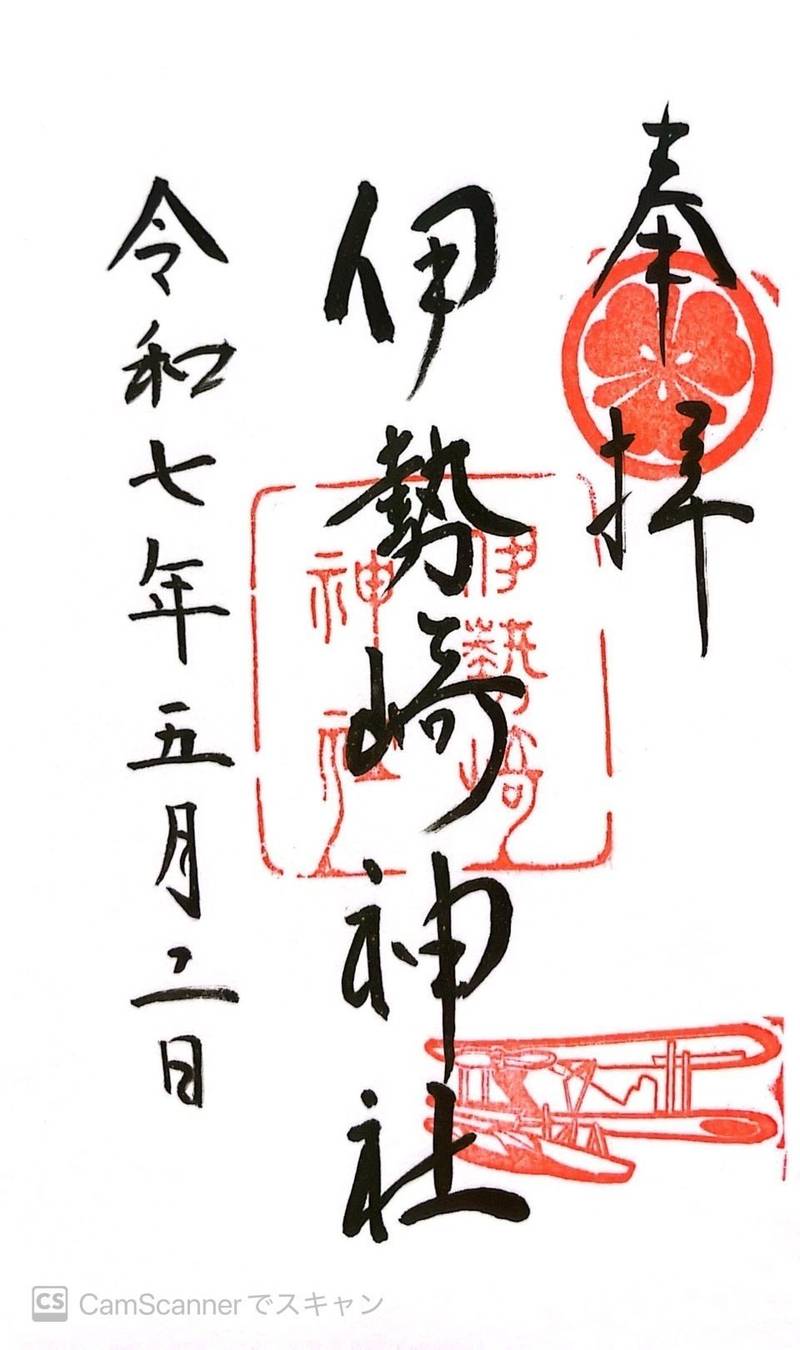 奉拝
伊勢崎神社
伊勢崎
神社
令和七年五月二日
CS CamScanner でスキャン